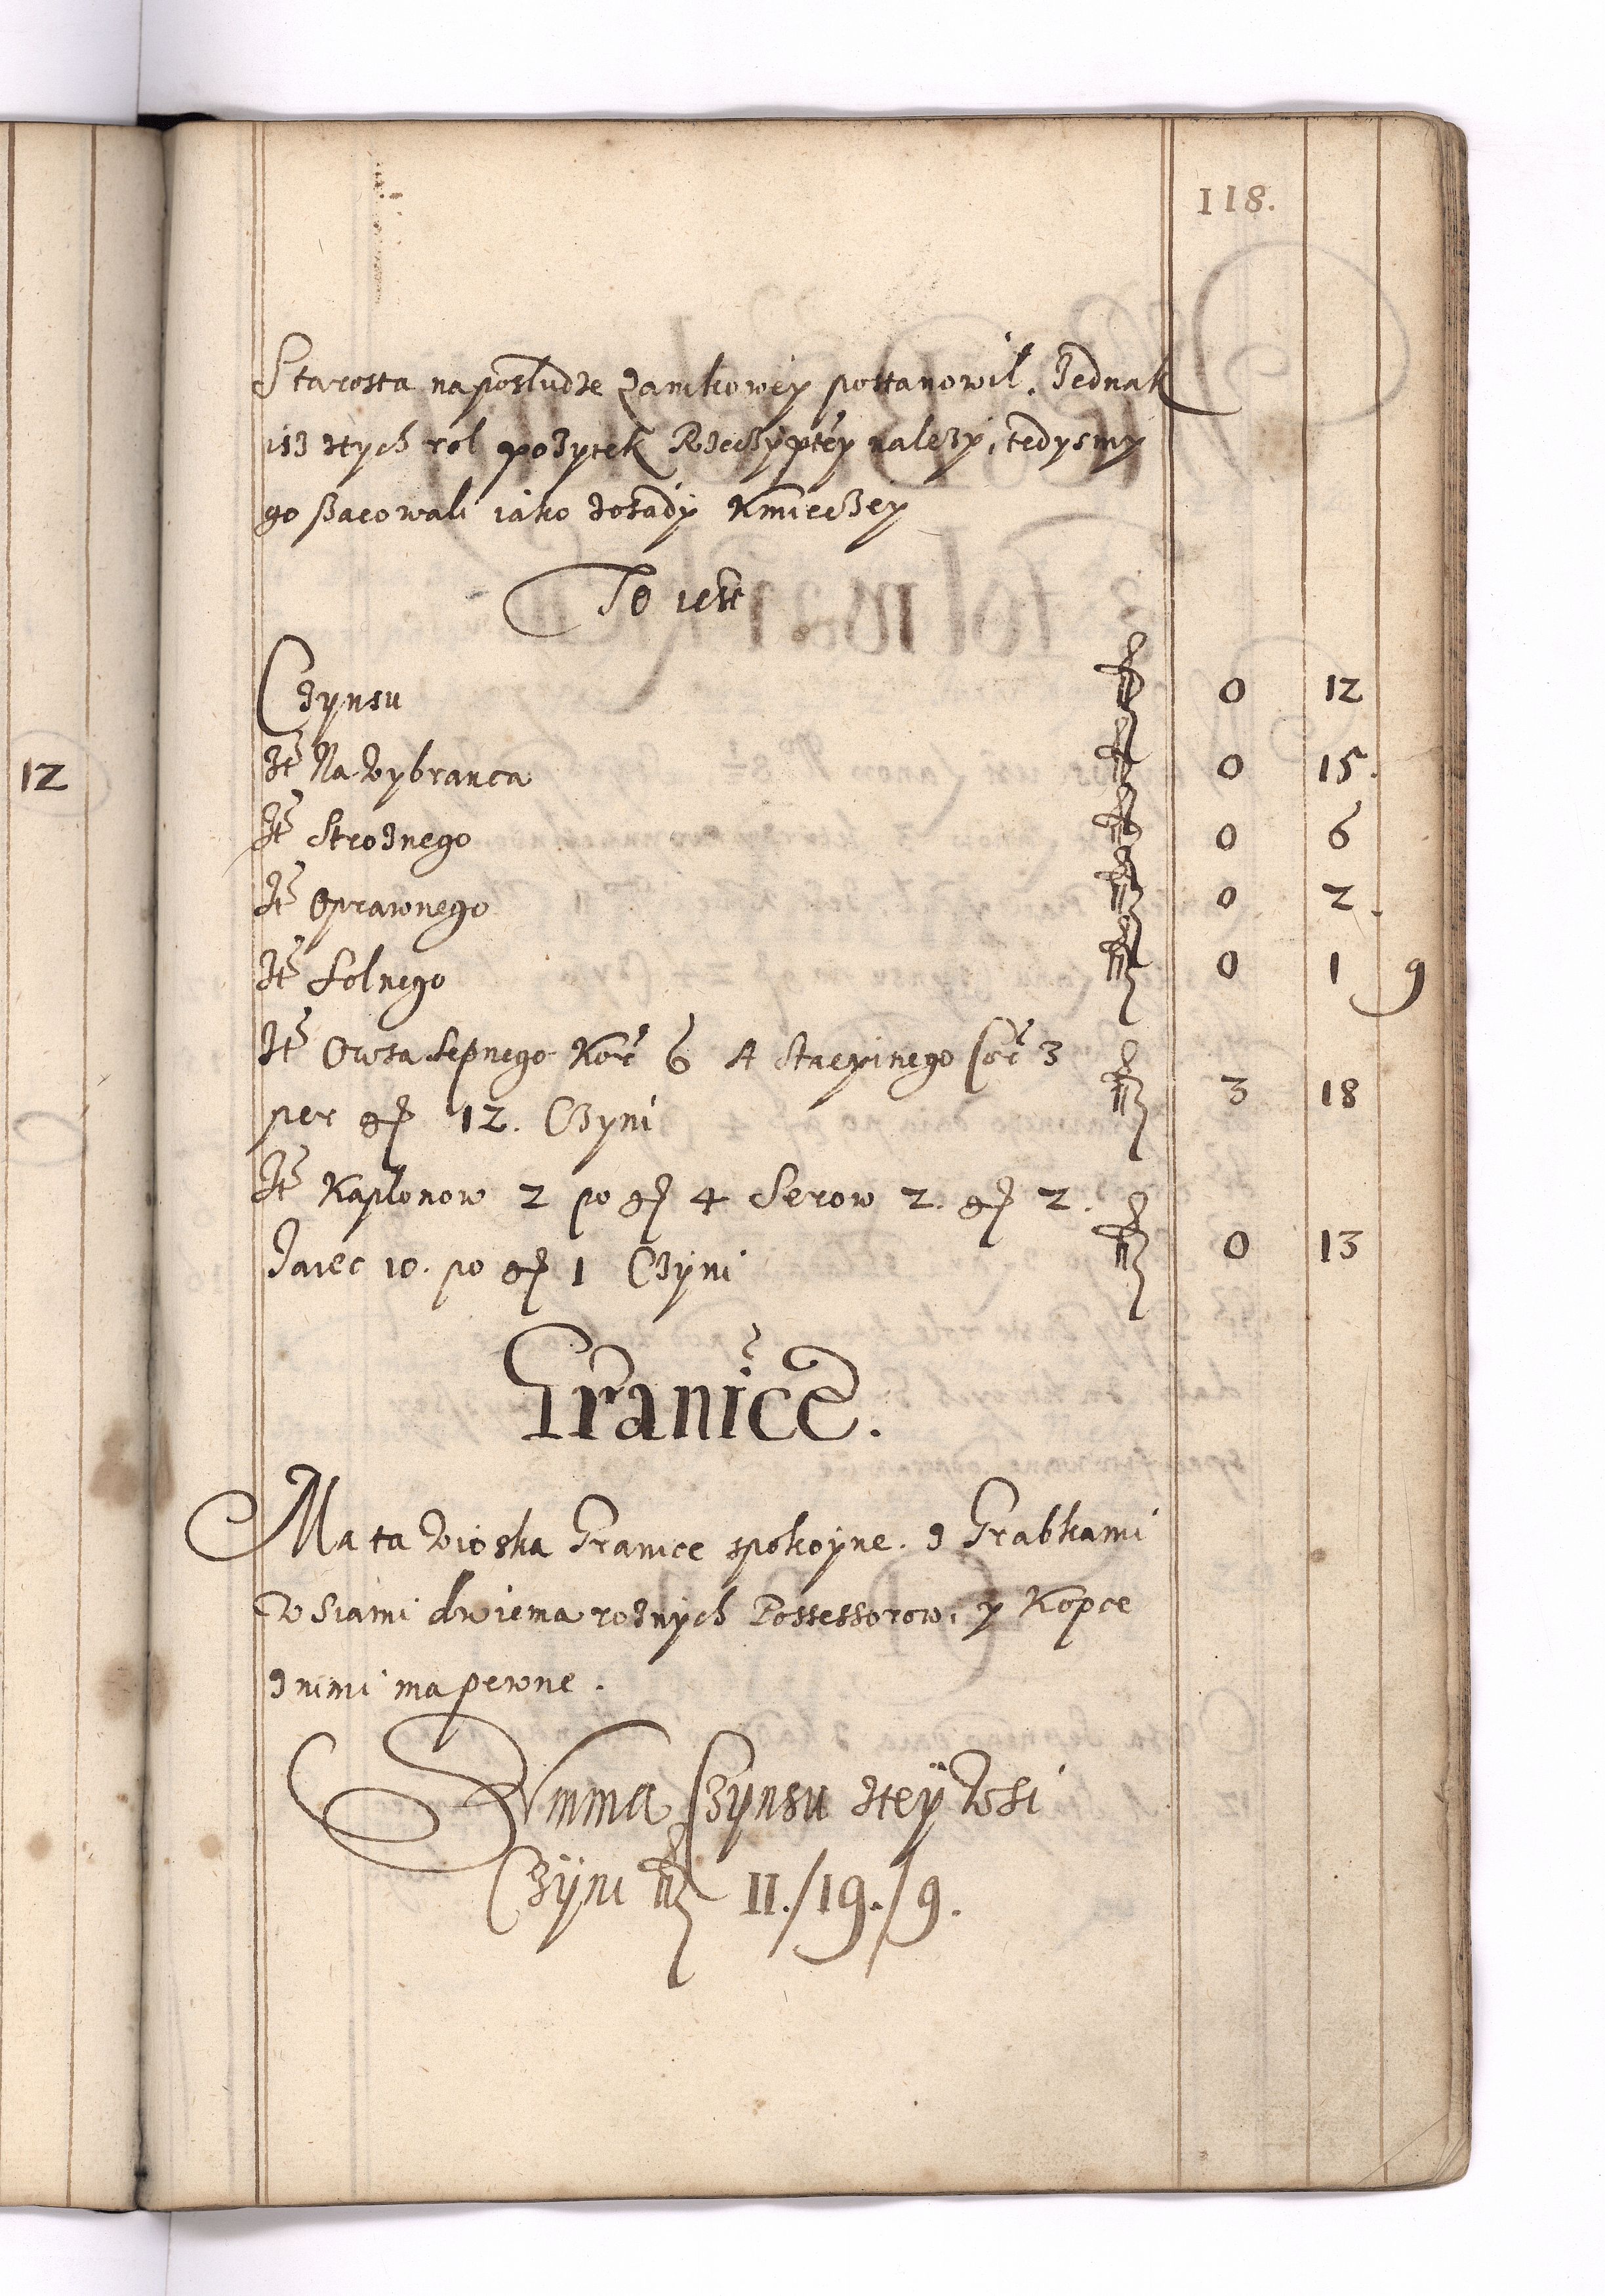 12
118.
Starosta na posłudze zamkowey postanowił. Jednak
isz ztych rol pozytek Rzeczyptey nalezy, tedysmy
go szacowali iako zosady Kmieczey
To iest
Czynsu f 0 12
It Na Wybranca f 0 15.
It Stroznego f 0 6
It Oprawnego f 0 2.
It Solnego f 0 1 9
It Owsa Sepnego Kor 6 A Stacyinego Cor 3
per gr 12. Czyni f 3 18
It Kapłonow 2 po gr 4 Serow 2. gr 2.
Jaiec 10. po gr 1 Czyni f 0 13
Granice.
Ma ta Wioska Granice spokoyne. z Grabkami
Wsiami dwiema roznych Possessorow, y Kopce
z nimi ma pewne.
Summa Czynsu ztey Wsi
Czyni f II./19./9.